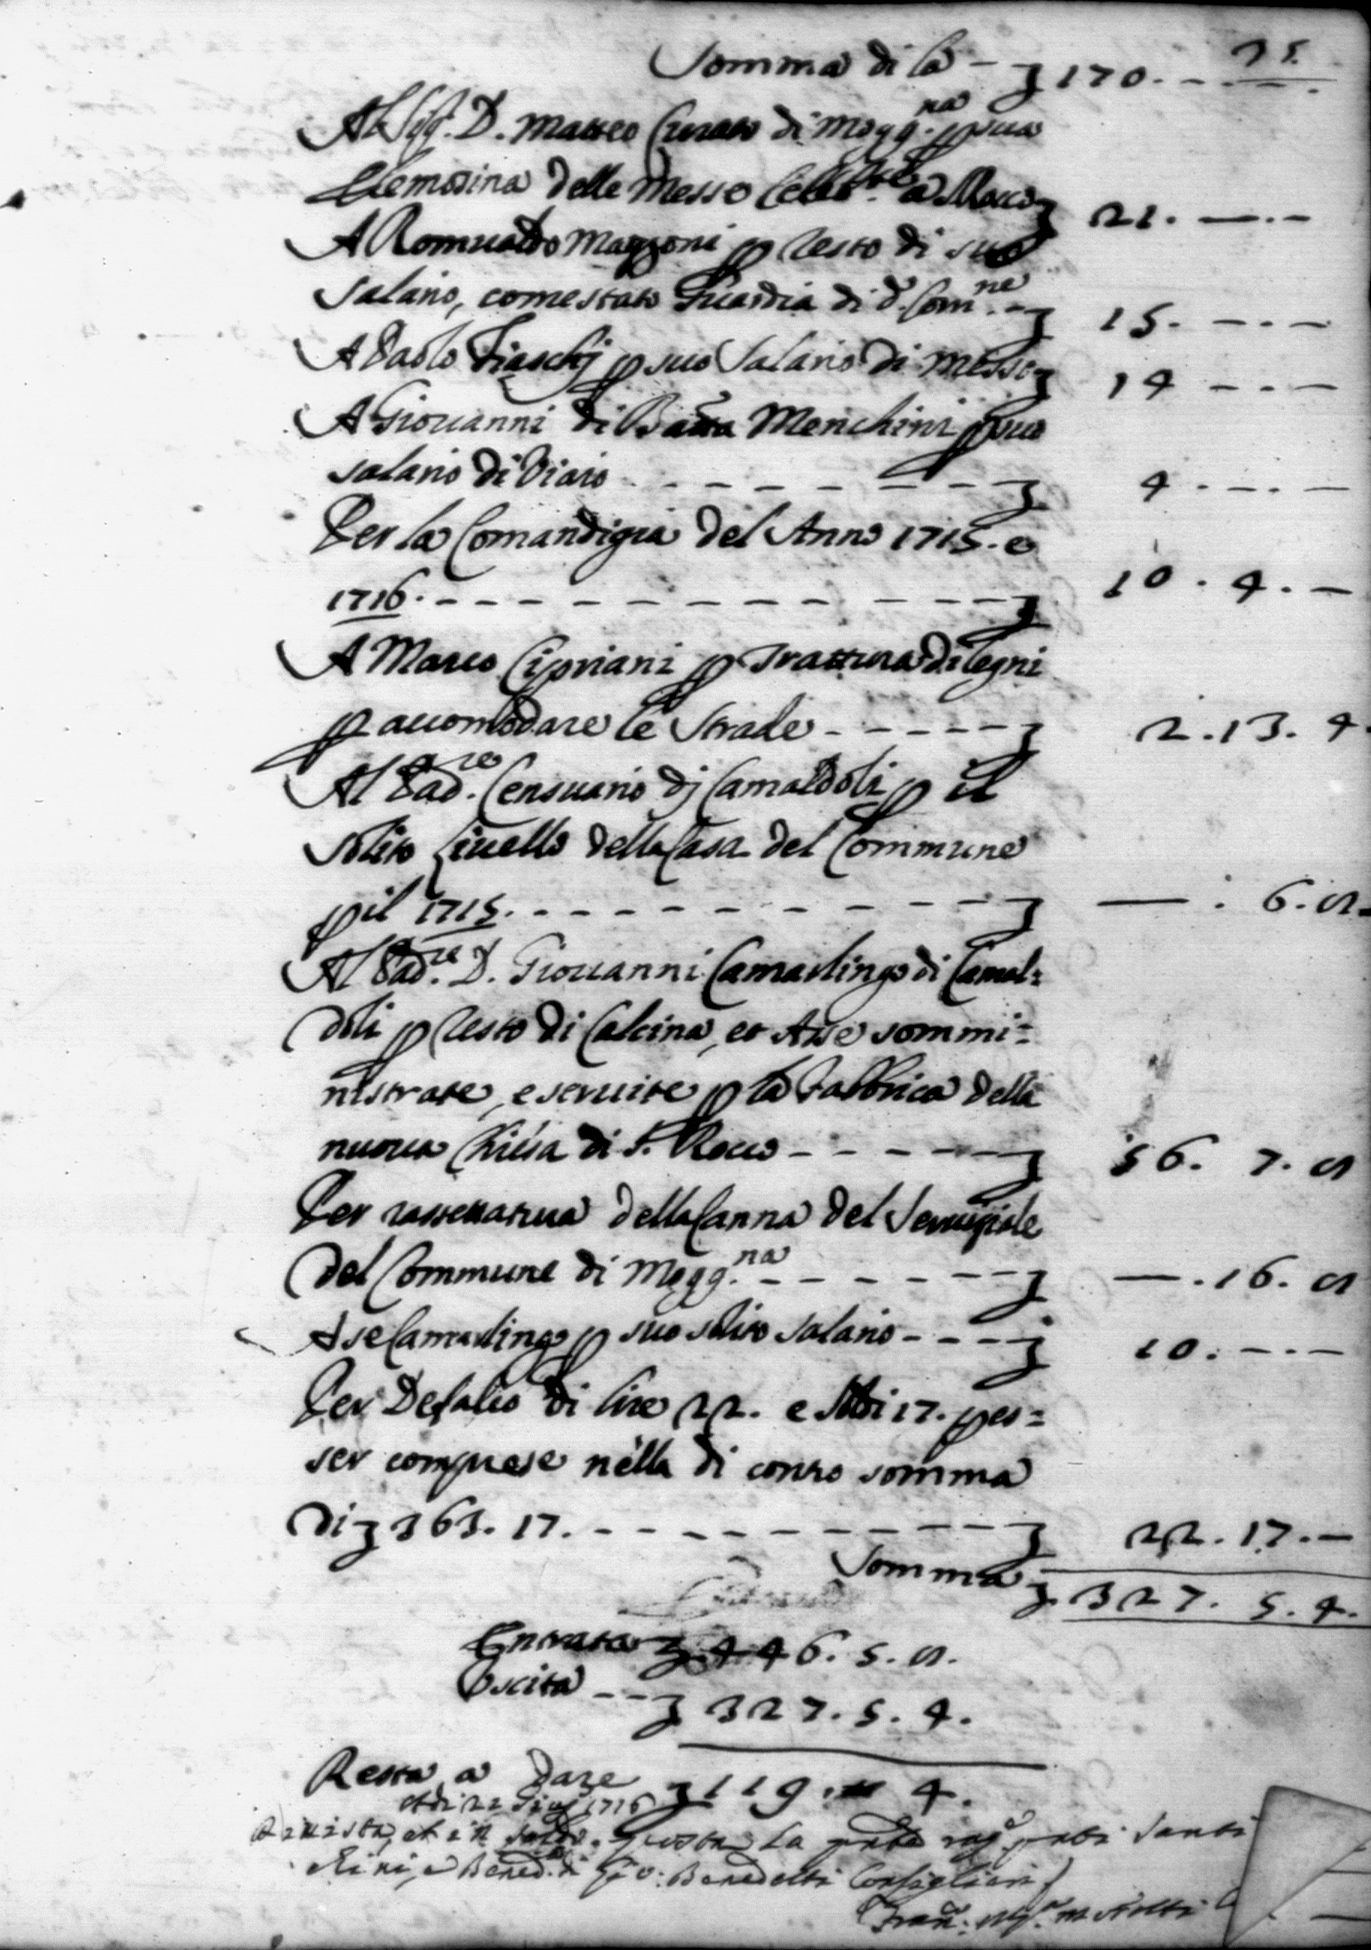 25.
Somma di là - £ 170. - . -
Al Sig. D. Matteo Curato di Mogg.na p sua
Elemosina delle Messe Celeb.te a S. Rocco £ 21. - . -
A Romualdo Mazzoni p resto di suo
salario, come stato Guardia di d.o Com.ne - £ 15. - . -
A Paolo Fiaschj p suo salario di Messo £ 14 - . -
A Giovanni di Batta Menchini p suo
salario di Viaio - - - - - - - £ 4. - . -
Per la Comandigia del Anno 1715. e
1716. - - - - - - - - - - £ 10. 4. -
A Marco Cipriani p trattura di legni
p accomodare le strade - - - - - £ 2. 13. 4
Al Pad.re Censuario dj Camaldoli p il
solito Livello della Casa del Commune
p il 1715. - - - - - - - - - £ - : 6. 8.
Al Pad.re D. Giovanni Camarlingo di Camal=
doli p resto di Calcina, et Asse sommi=
nistrate, e servite p la fabbrica della
nuova Chiesa di S. Rocco - - - - - £ 56. 7. 8
Per rassettatura della Canna del Serviziale
del Commune di Mogg.na - - - - - £ - . 16. 8
A se Camarlingo p suo solito salario - - - £ 10. - . -
Per Defalco di lire 22. e soldi 17. p es=
ser comprese nella di contro somma
di £ 363. 17. - - - - - - - - £ 22. 17. -
Somma £ 327. 5. 4.
Entrata £ 446. 5. 8.
Uscita - - £ 327. 5. 4.
Resta a dare £ 119. - 4.
Adi 22 1716
Rivista, et in saldo giusta la pnte rag.e pnti Santi
e Bened. di Gio: Benedetti Consiglieri
Fran.